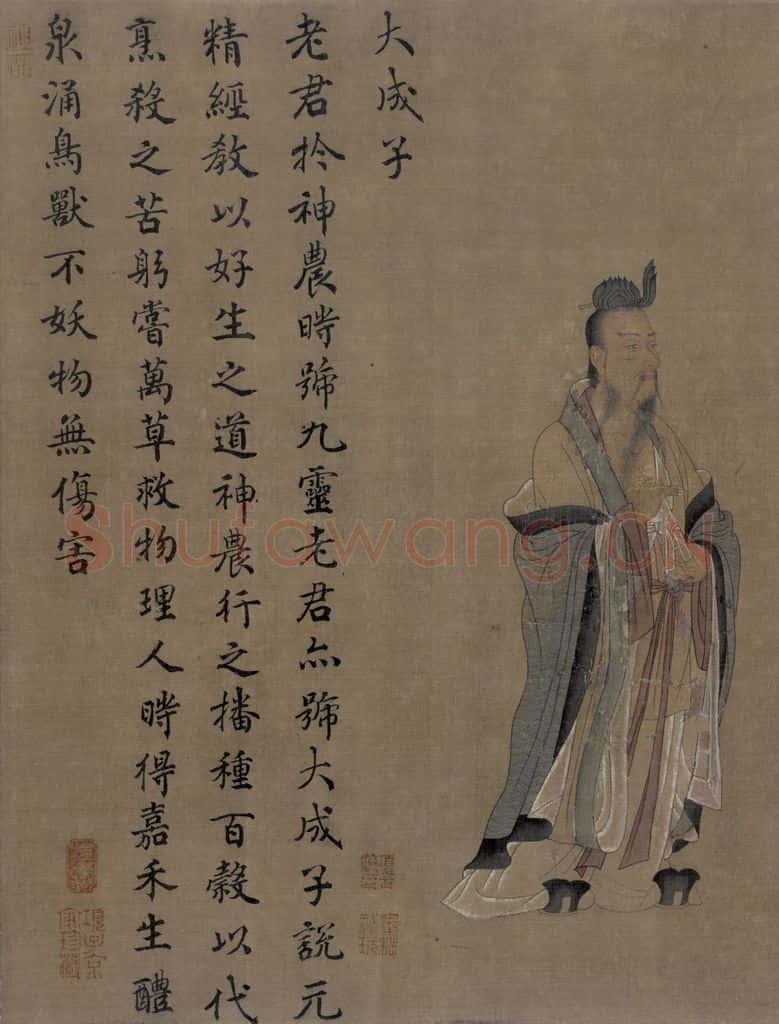 大成子
老君於神農時號九靈老君亦號大成子說元
精經教以好生之道神農行之播種百穀以代
烹殺之苦躬嘗萬草救物理人時得嘉禾生醴
泉涌鳥獸不妖物無傷害
Shufawang.CN